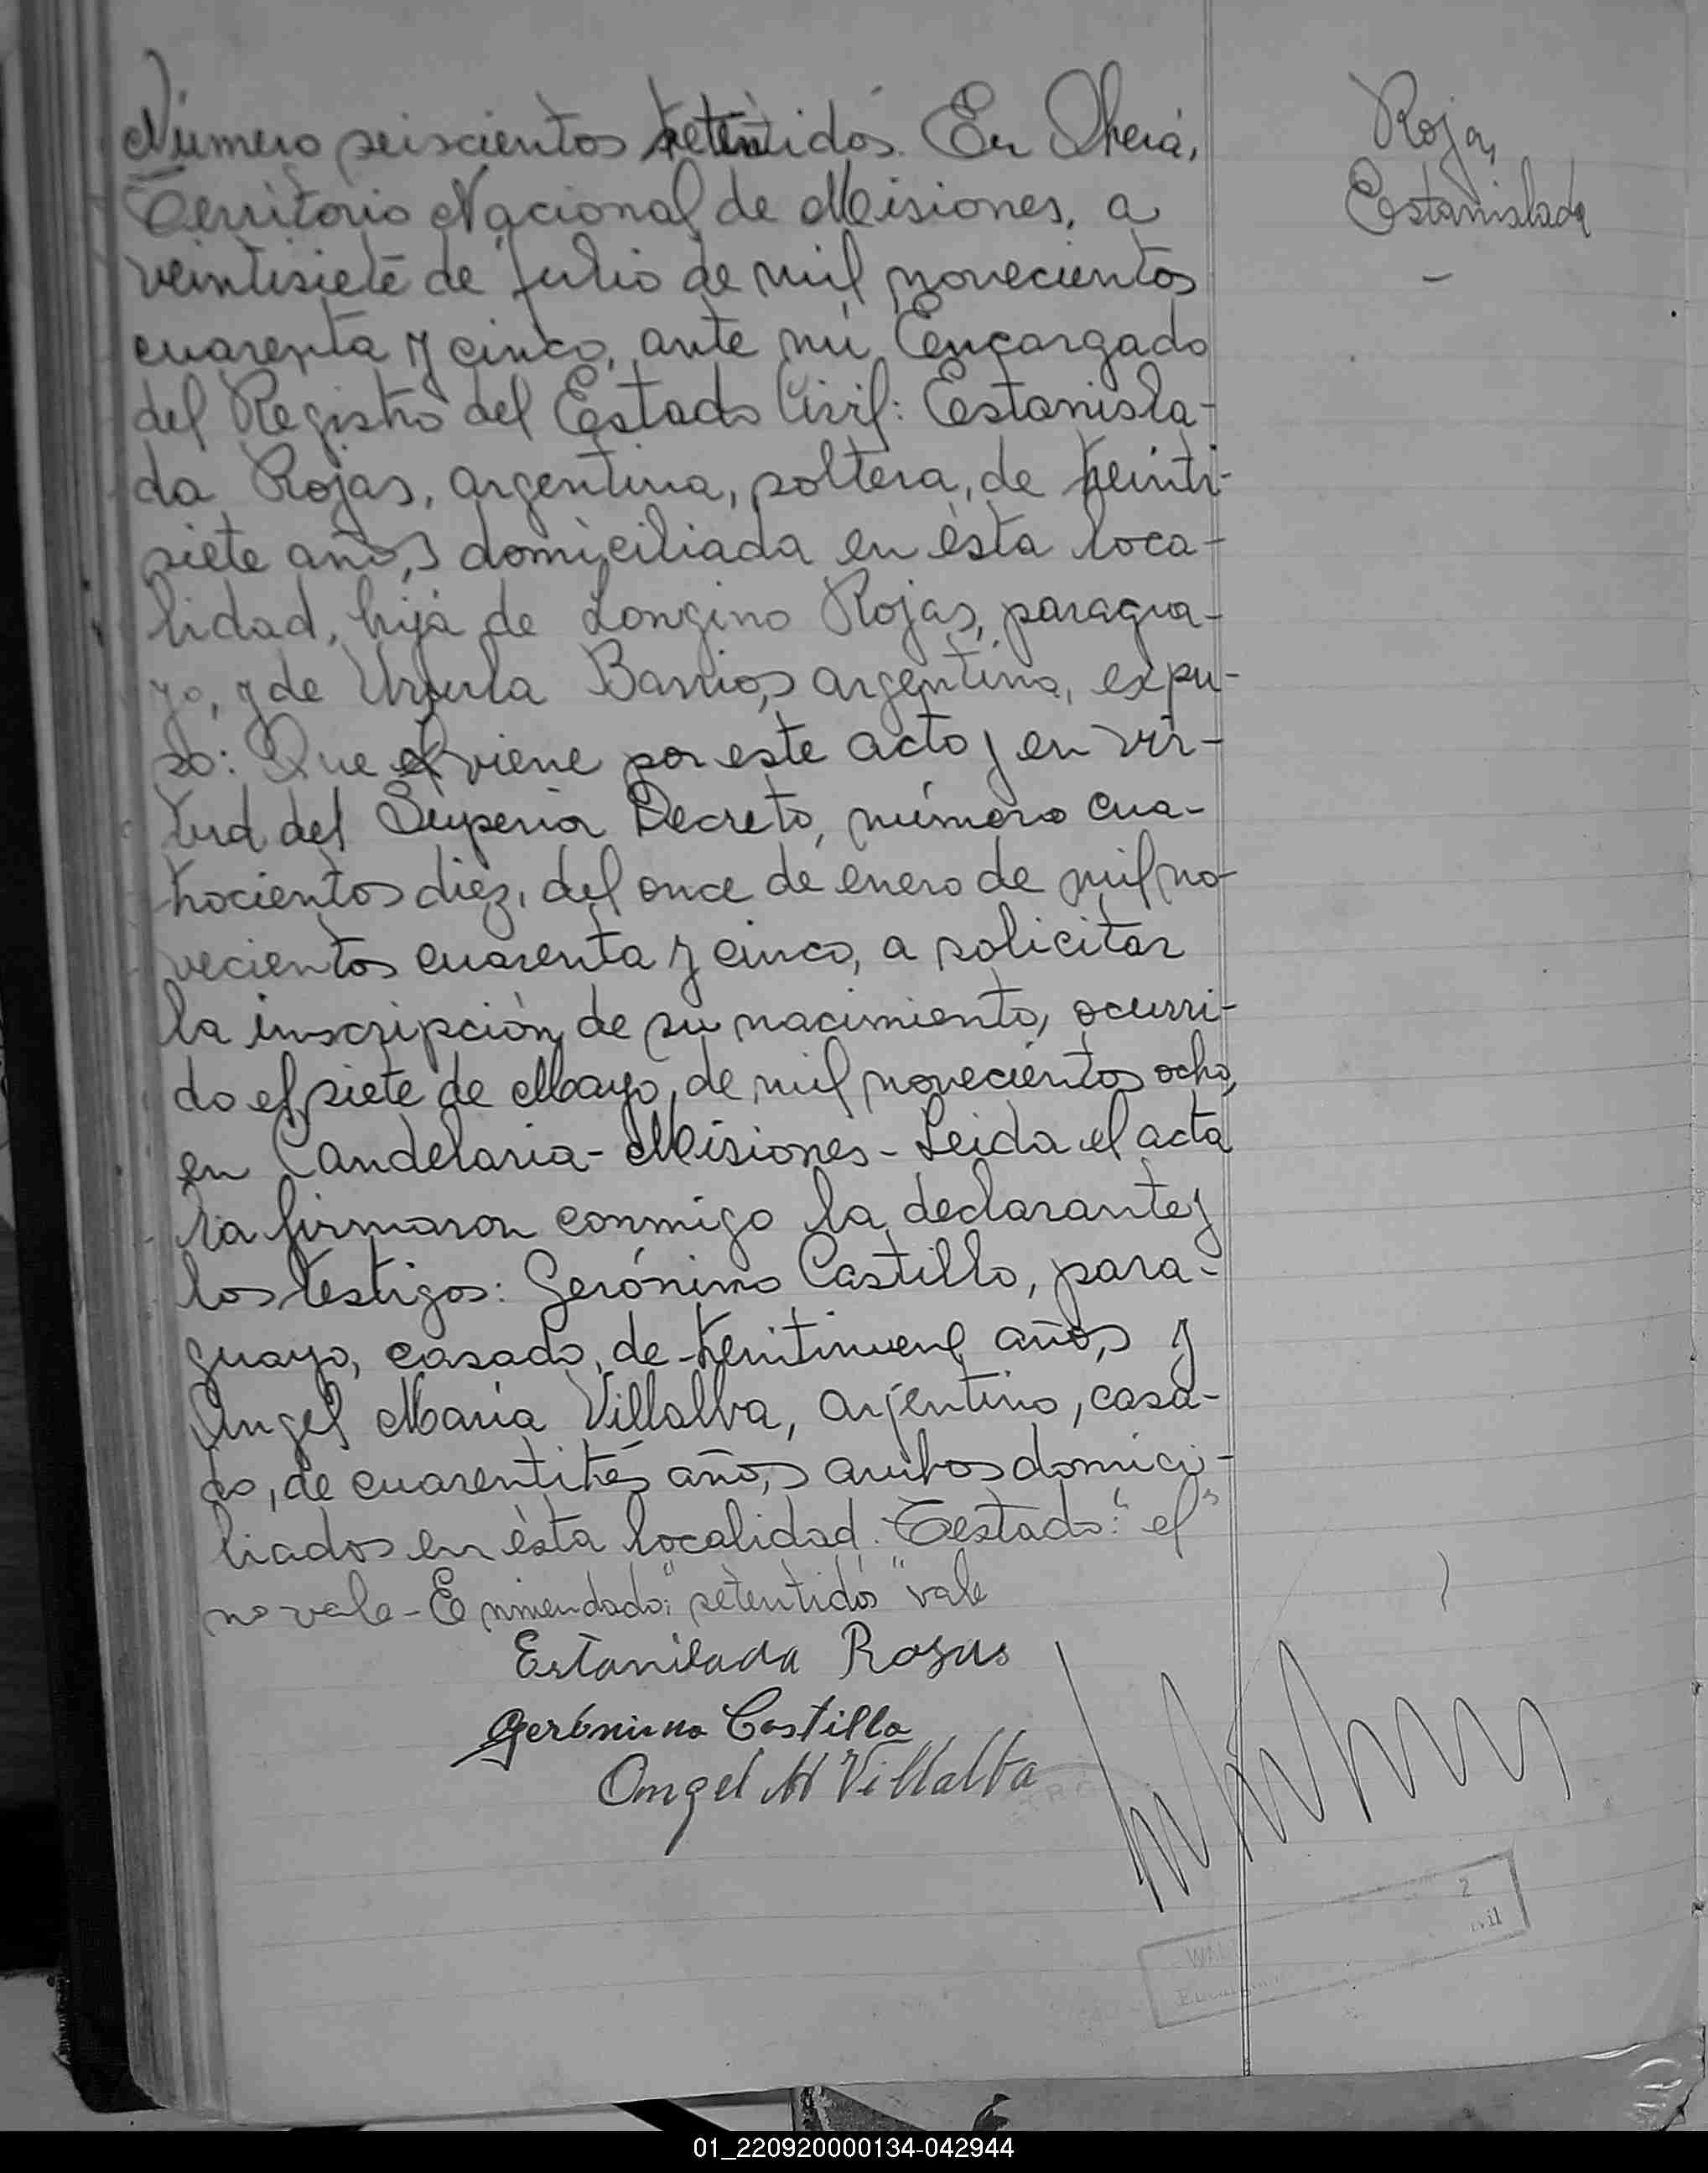 Número seiscientos setentidós. En Oberá,
Territorio Nacional de Misiones, a
veintisiete de Julio de mil novecientos
cuarenta y cinco, ante mí Encargado
del Registro del Estado Civil: Estanisla-
da Rojas, argentina, soltera, de treinti-
siete años, domiciliada en ésta loca-
lidad, hija de Longino Rojas, paragua-
yo, y de Ursula Barrios, argentina, expu-
so: Que el viene por este acto y en vir-
tud del Superior Decreto, número cua-
trocientos diez, del once de enero de mil no-
vecientos cuarenta y cinco, a solicitar
la inscripción de su nacimiento, ocurri-
do el siete de Mayo, de mil novecientos ocho,
en Candelaria - Misiones - Leida el acta
la firmaron conmigo la declarante y
los testigos: Gerónimo Castillo, para-
guayo, casado, de treintinueve años, y
Angel María Villalba, argentino, casa-
do, de cuarentitrés años, ambos domici-
liados en ésta localidad. Testado: "el"
no vale - Enmendado: "setentidós" vale
Estanilada Rojas
Gerónimo Castillo
Angel M Villalba
Rojas,
Estanislada
-
01_220920000134-042944